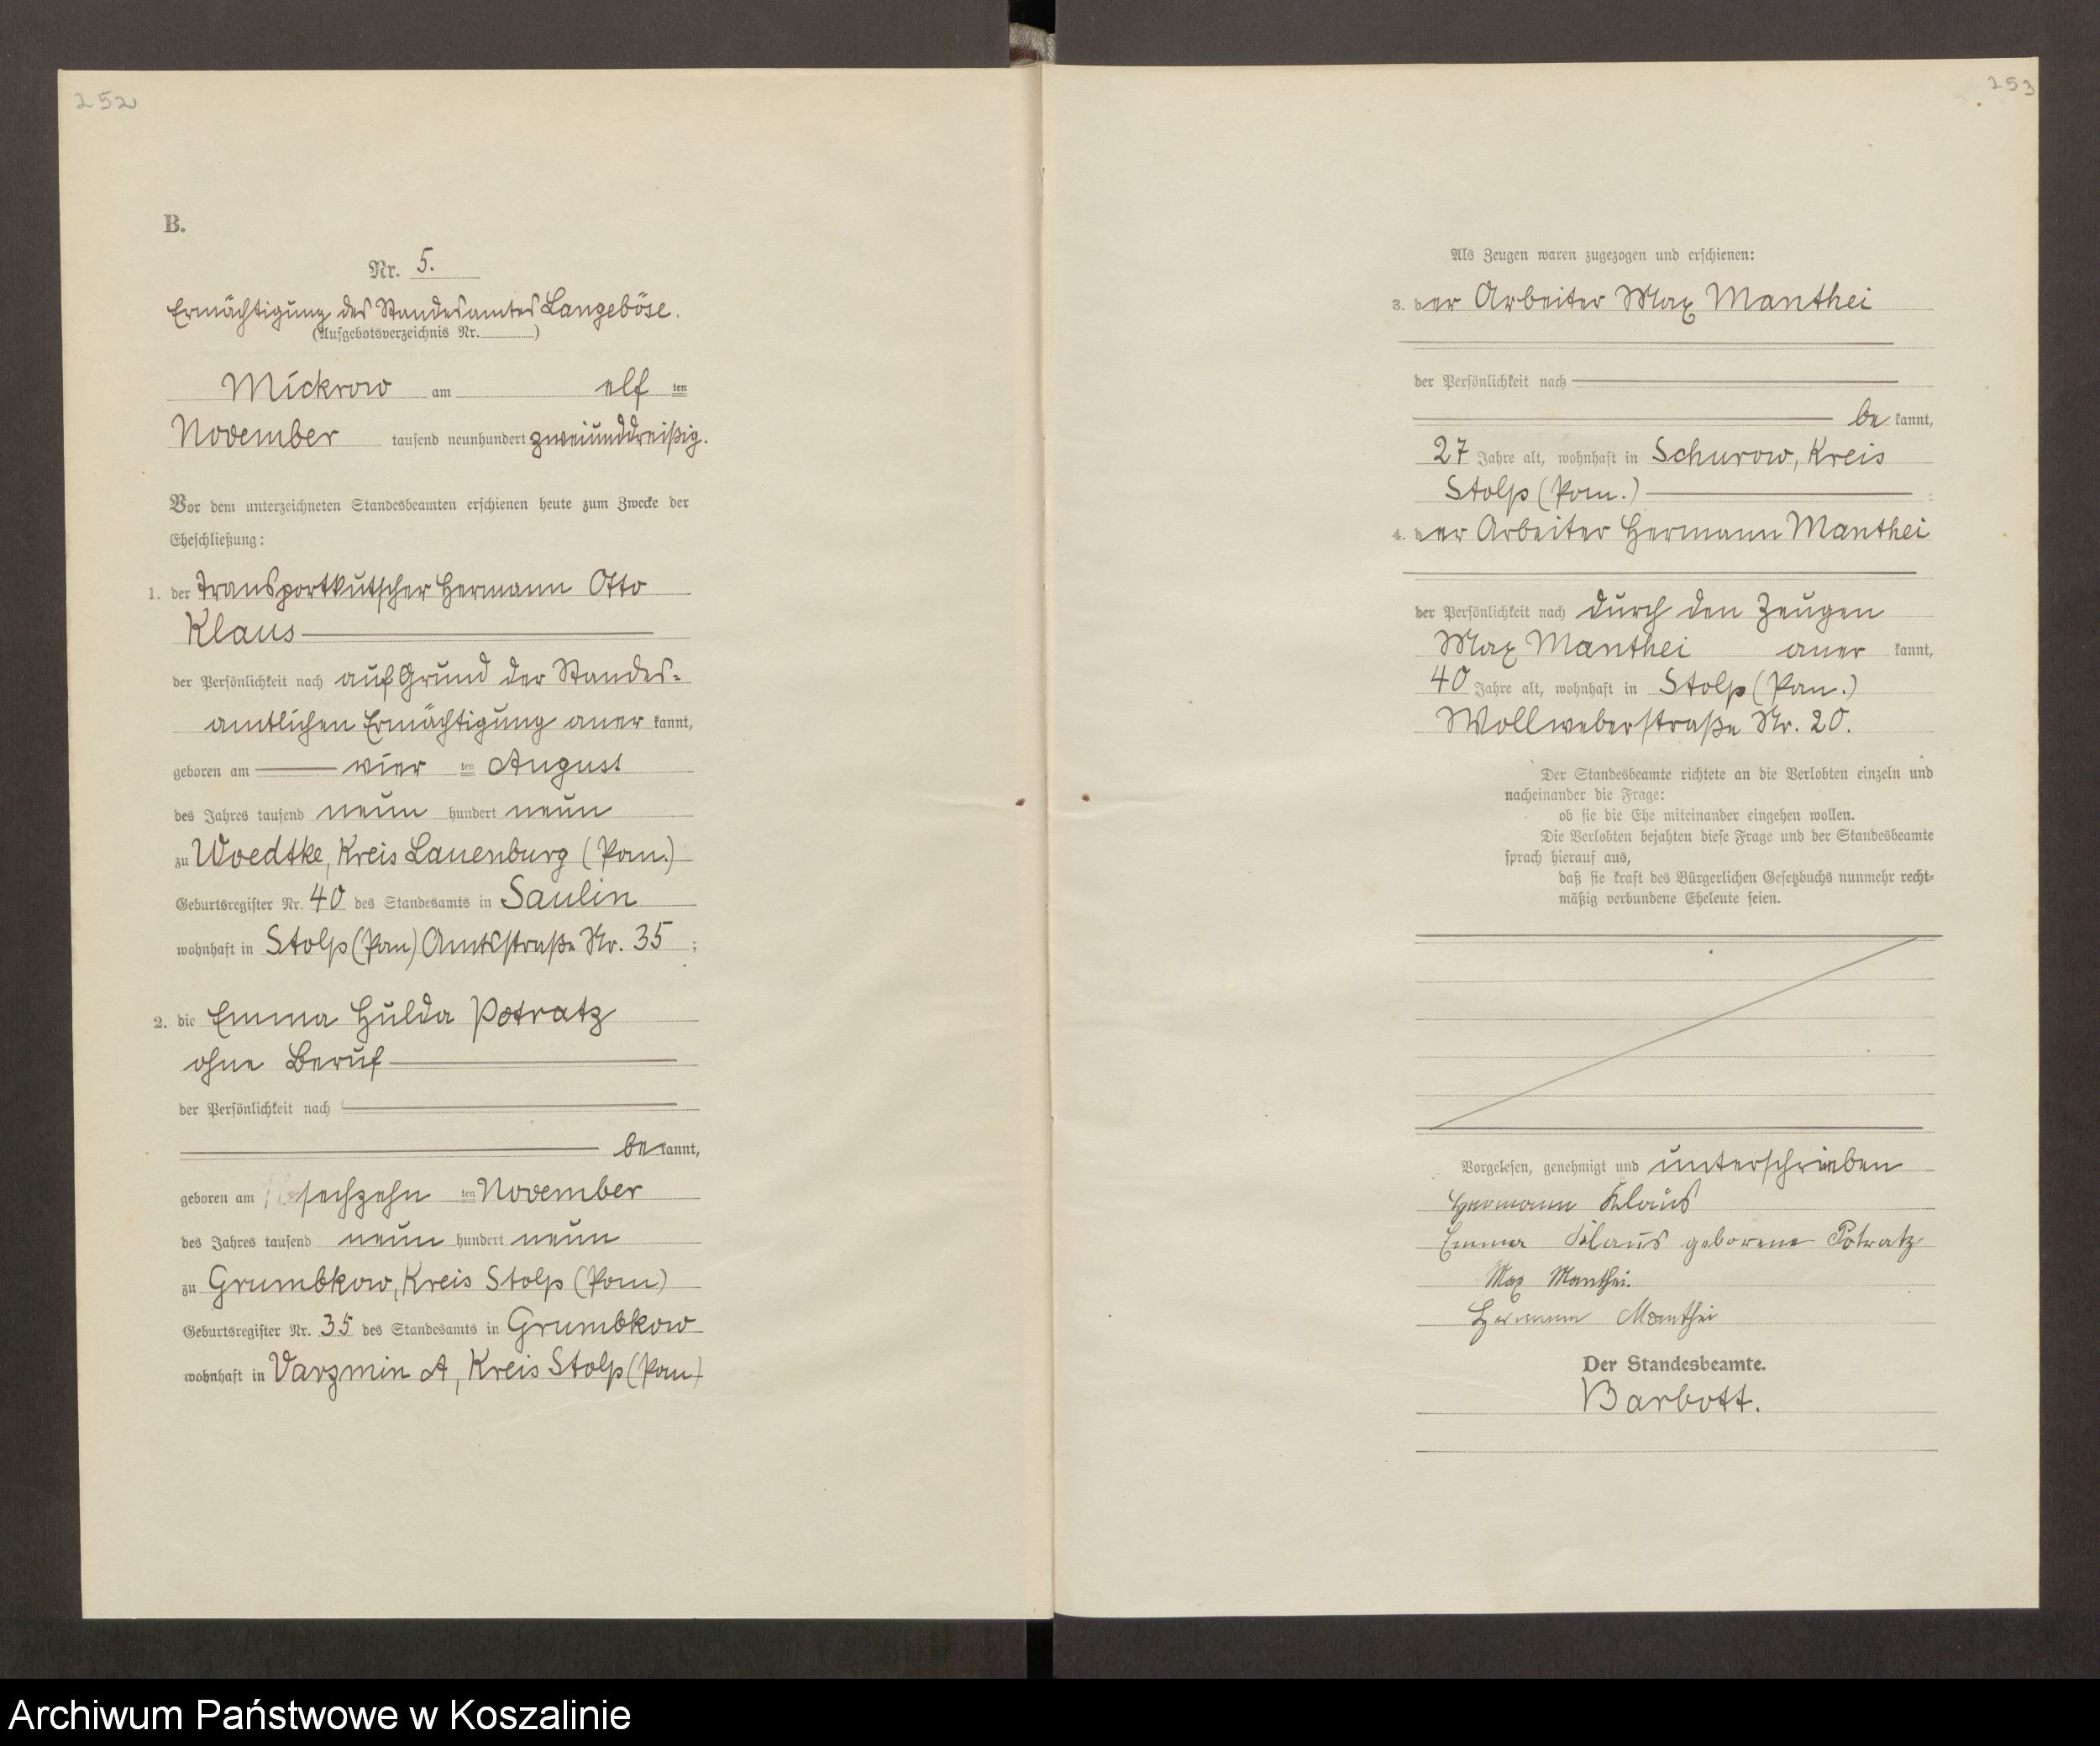 252
B.
Nr. 5.
Ermächtigung des Standesamtes Langeböse.
(Aufgebotsverzeichnis Nr. )
Mickrow am elf ten
November tausend neunhundert zweiunddreißig.
Vor dem unterzeichneten Standesbeamten erschienen heute zum Zwecke der
Eheschließung:
1. der Transportkutscher Hermann Otto
Klaus
der Persönlichkeit nach auf Grund der Standes-
amtlichen Ermächtigung aner kannt,
geboren am vier ten August
des Jahres tausend neun hundert neun
zu Woedtke, Kreis Lauenburg (Pom.)
Geburtsregister Nr. 40 des Standesamts in Saulin
wohnhaft in Stolp (Pom) Amtsstraße Nr. 35 ;
2. die Emma Hulda Potratz
ohne Beruf
der Persönlichkeit nach
be kannt,
geboren am sechzehn ten November
des Jahres tausend neun hundert neun
zu Grumbkow, Kreis Stolp (Pom)
Geburtsregister Nr. 35 des Standesamts in Grumbkow
wohnhaft in Varzmin A, Kreis Stolp (Pom)
253
Als Zeugen waren zugezogen und erschienen:
3. der Arbeiter Max Manthei
der Persönlichkeit nach
be kannt,
27 Jahre alt, wohnhaft in Schurow, Kreis
Stolp (Pom.) ;
4. der Arbeiter Hermann Manthei
der Persönlichkeit nach durch den Zeugen
Max Manthei aner kannt,
40 Jahre alt, wohnhaft in Stolp (Pom.)
Wollweberstraße Nr. 20.
Der Standesbeamte richtete an die Verlobten einzeln und
nacheinander die Frage:
ob sie die Ehe miteinander eingehen wollen.
Die Verlobten bejahten diese Frage und der Standesbeamte
sprach hierauf aus,
daß sie kraft des Bürgerlichen Gesetzbuchs nunmehr recht-
mäßig verbundene Eheleute seien.
Vorgelesen, genehmigt und unterschrieben
Hermann Klaus
Emma Klaus geborene Potratz
Max Manthei.
Hermann Manthei
Der Standesbeamte.
Barbott.
Archiwum Państwowe w Koszalinie